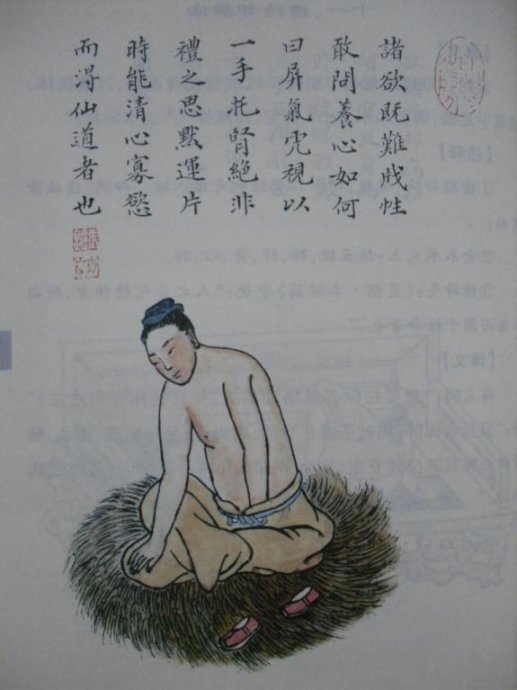 諸欲既難戕性
敢問養心如何
曰屏氣虎視以
一手托腎絕非
禮之思默運片
時能清心寡慾
而淂仙道者也